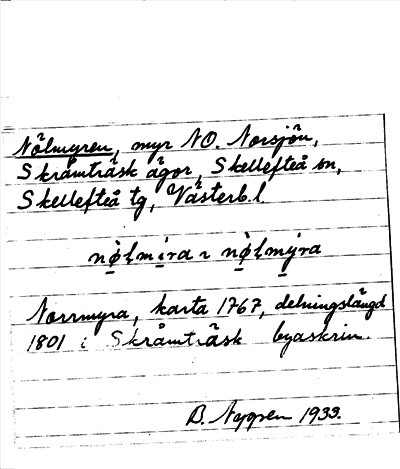 Nölmyren, myr NO. Norsjön,
Skråmträsk ägor, Skellefteå sn,
Skellefteå tg, Västerb.l.
nø̀lmira ɿ nø̀lmýra
Norrmyra, karta 1767, delningslängd
1801 i Skråmträsk byaskrin.
B. Nygren 1933.